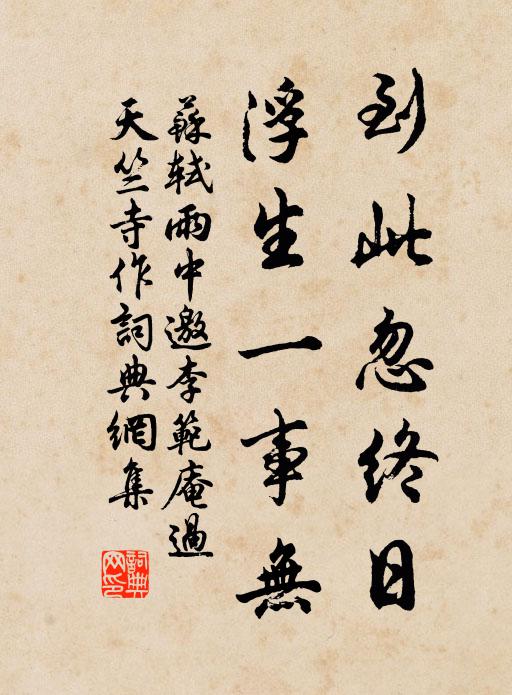 到此忽終日
浮生一事無
蘇軾雨中邀李範庵過
天竺寺作詞典網集
詞典
网印